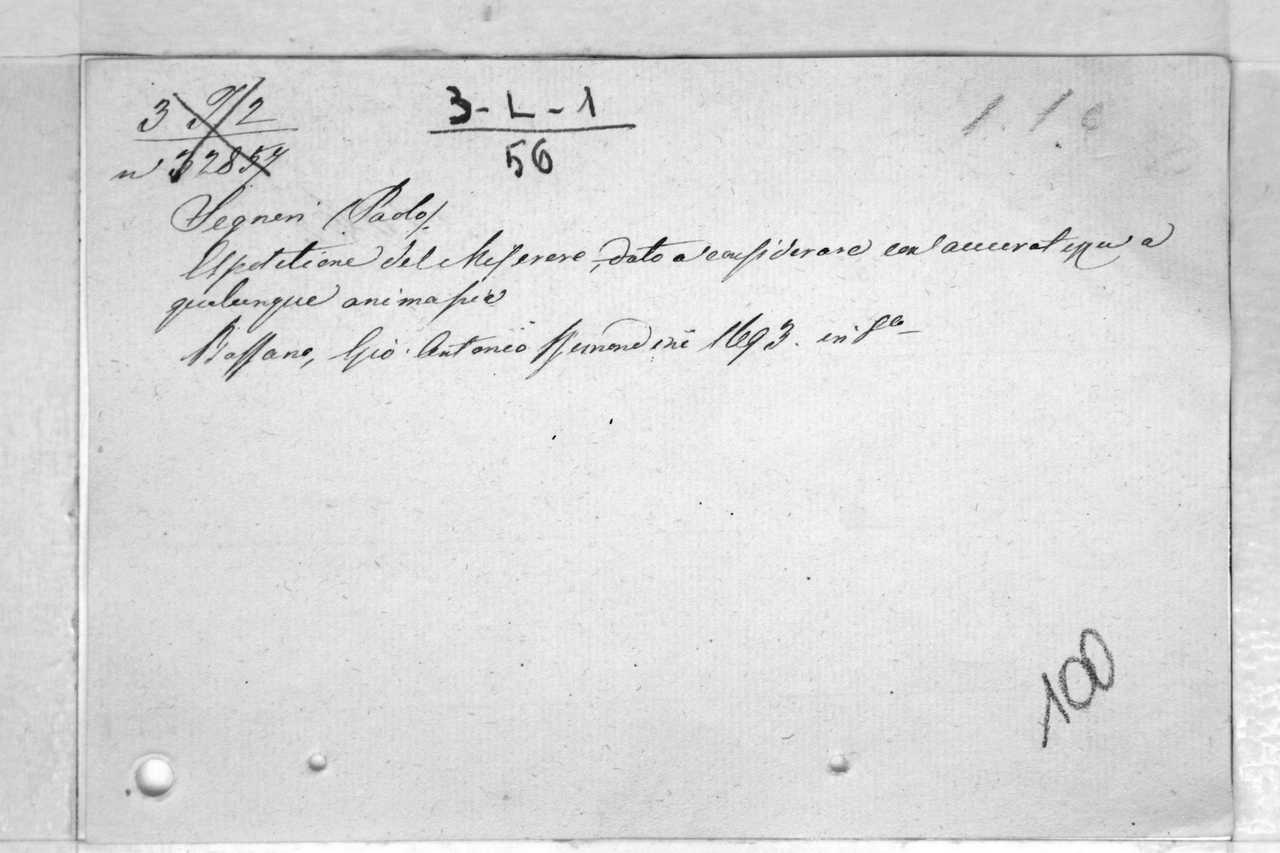 3 9/2
n 32857
3-L-1
56
1.1 6
Segneri (Paolo)
Espositione del Miserere, dato a considerare con accuratezza a
qualunque anima pia
Bassano, Gio. Antonio Remondini 1693. in 8°
100